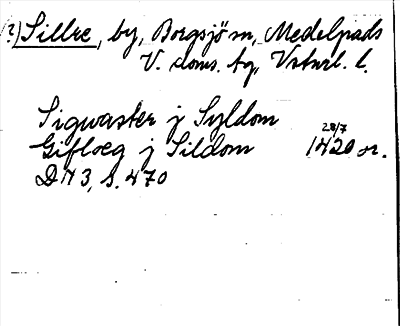 ?) Sillre, by, Borgsjö sn, Medelpads
V. doms. tg, Vstnrl. l.
Sigwaster j Syldom
Gifloeg j Sildom 28/7 1420 or.
DN 3, S. 470